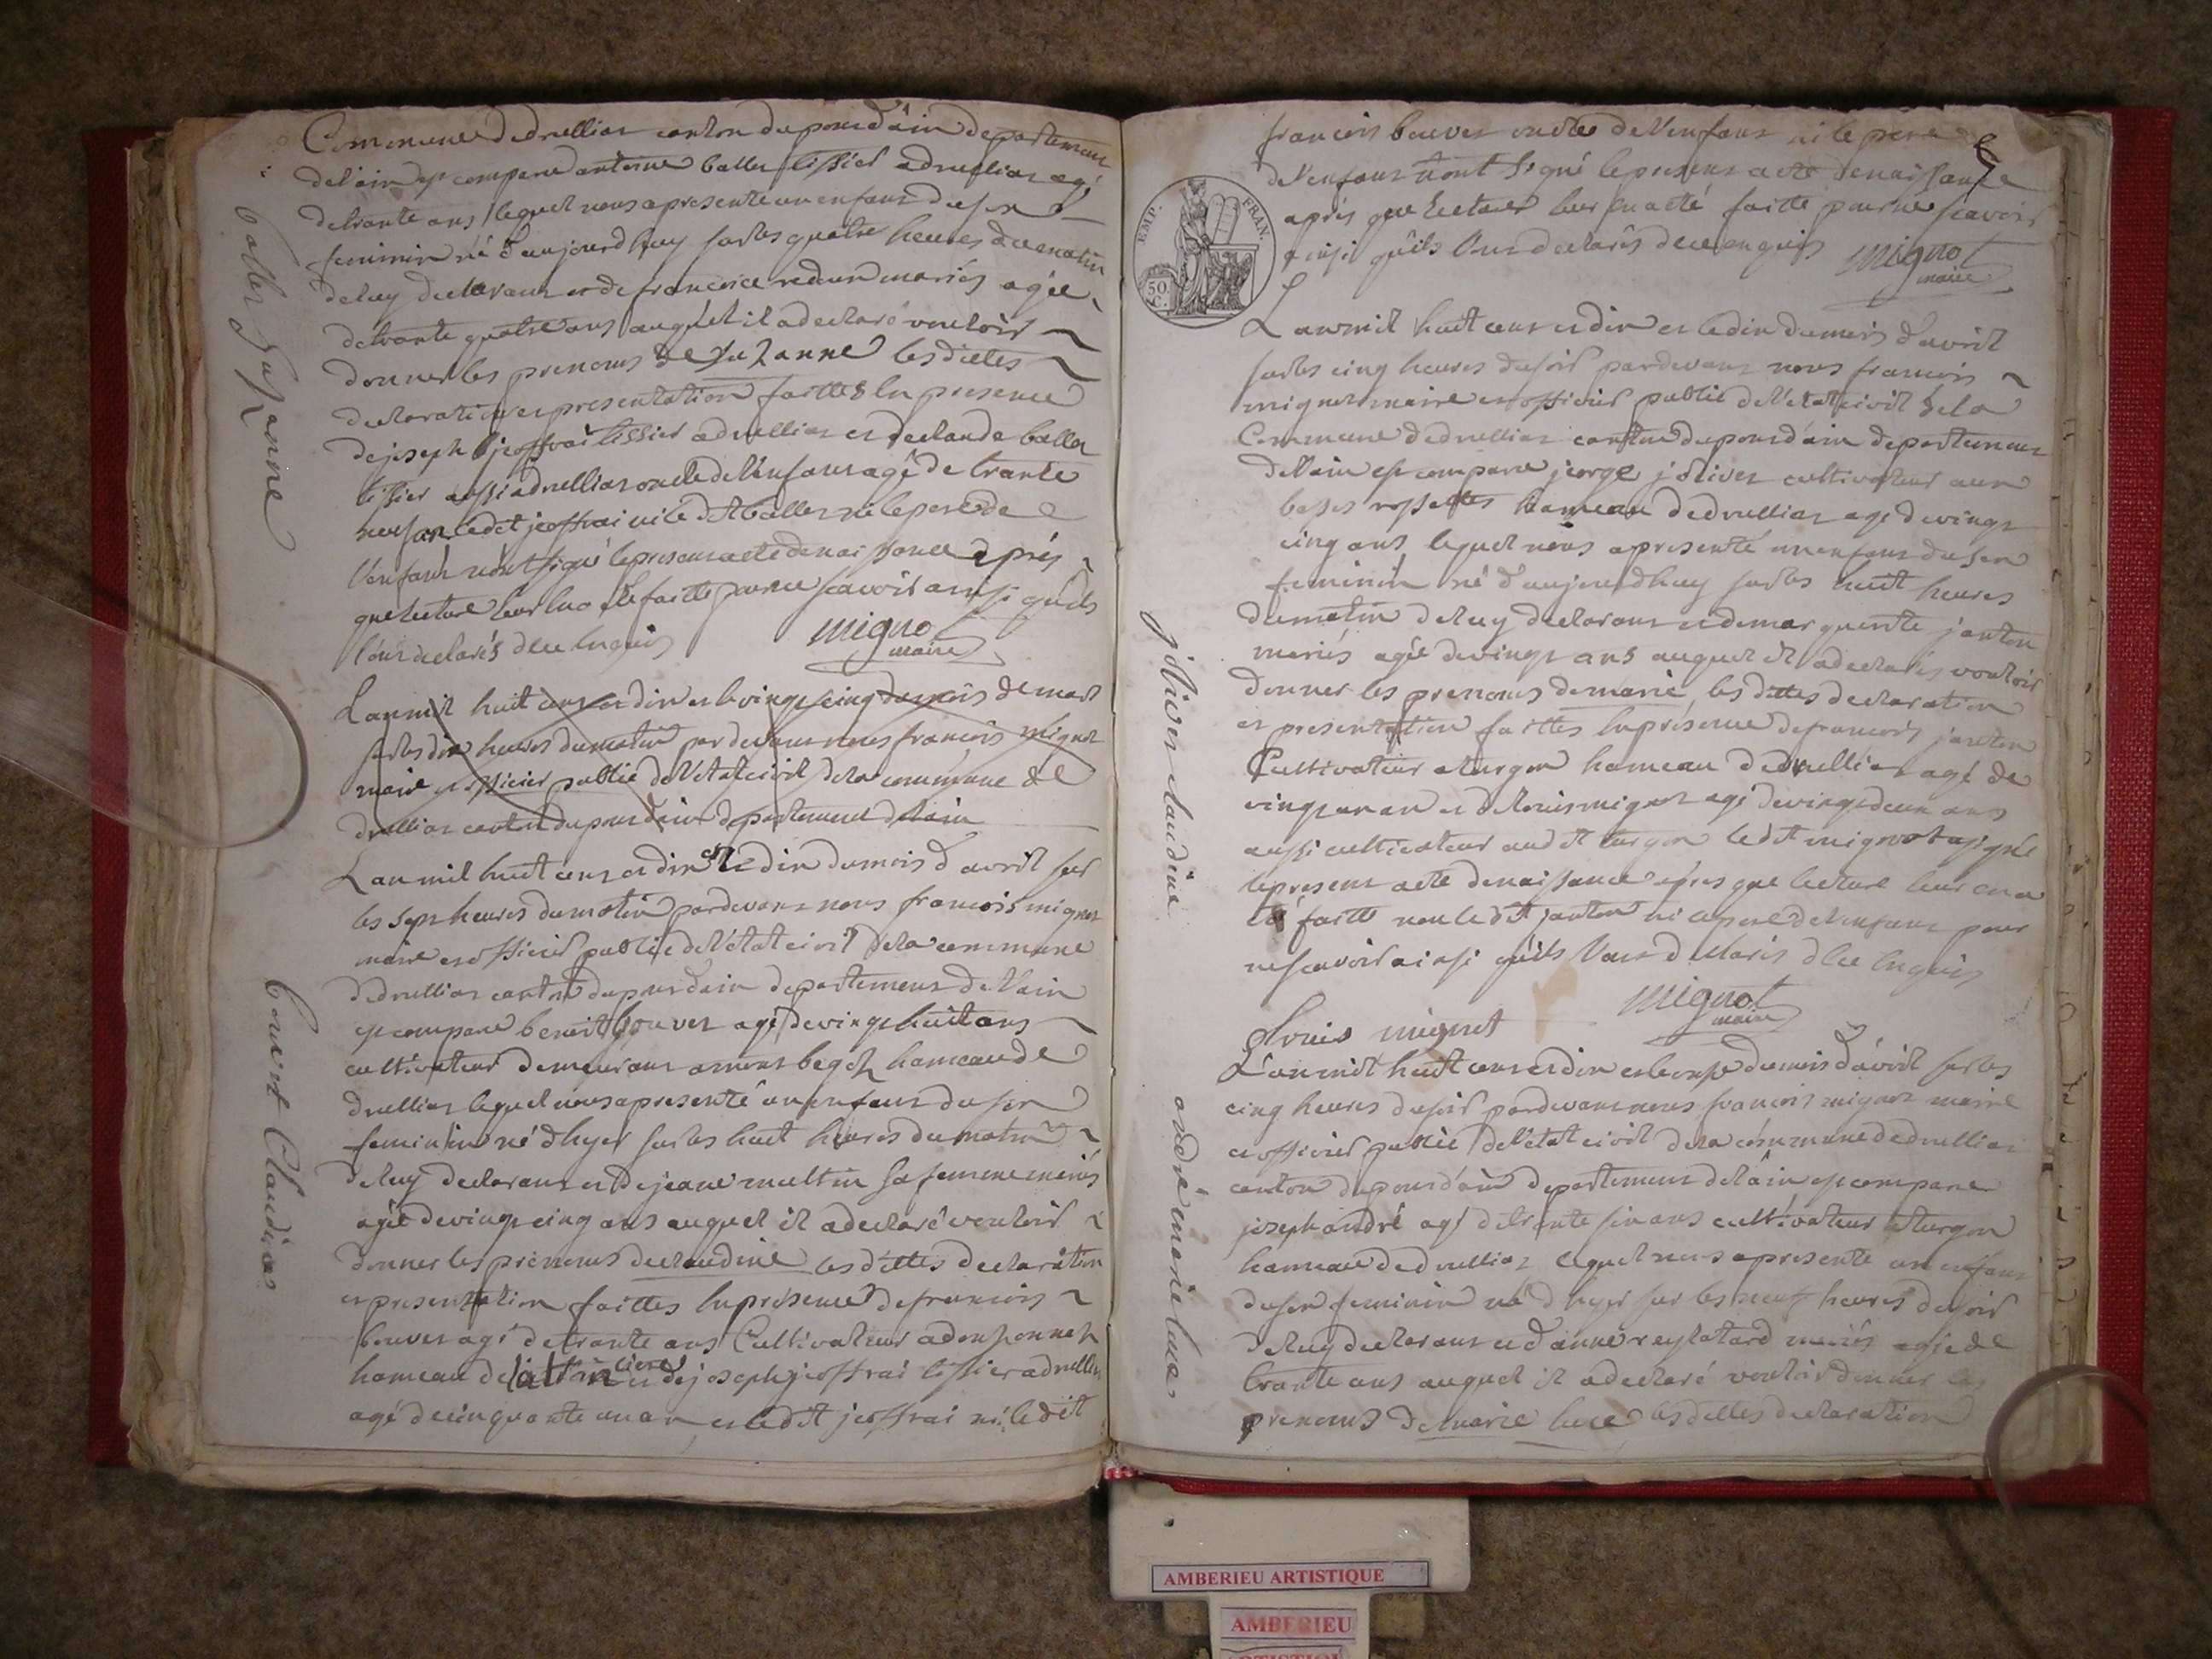 Commune de druillias canton du pons d'ain departement
de l'ain est compare antoine ballet tissier a druillias agé
de trante ans lequel nous a presente un enfans du sex
feminin né d'aujourd huy sur les quatre heures du matin
de luy declarans et de francoise mariés agée
de trante quatre ans auquel il a declaré vouloir
donner les prenoms de suzanne les dittes
declaration et presentation faittes en presence
de joseph jeoffrai tissier a druillias et de claude ballet
tissier aussi a druillias oncle de l'enfans agé de trante
neuf an ledit jeoffrai ni le dit ballet ni le pere de
l'enfans n'ont signé le presens acte de naissance après
que lecture leur en a été faitte pour ne scavoir ainsi qu'ils
l'ons declarés de ce enquis mignot
maire
ballet Suzanne
L'an mil huit cens et dix et le vingt cinq du mois de mars
sur les dix heures du matin par devans nous francois mignot
maire et officier public de l'etat civil de la commune de
druillias canton du pons d'ain departement de l'ain
L'an mil huit cens et dix et le dix du mois d'avril sur
les sept heures du matin pardevans nous francois mignot
maire et officier public de l'état civil de la commune
de druillias canton du pons d'ain departemens de l'ain
est compare benoit bouvet agé de vingt huit ans
cultivateur demeurans a hameau de
druillias lequel nous a presenté un enfans du sex
feminin né d'hyer sur les huit heures du matin
de luy declarans et de jeane sa femme mariés
agée de vingt cinq ans auquel il a declaré vouloir
donner les prénoms de claudine les dittes declaration
et presentation faittes en présence de francois
bouvet agé de trante ans Cultivateur a
hameau de et de joseph jeoffrai tissier a druillias
agé de cinquante un an et le dit jeoffrai ni le dit
bouvet Claudine
francois bouvet oncle de l'enfans ni le pere
de l'enfans n'ont signé le presens acte de naissance
après que lecture leur en a été faitte pour ne scavoir
ainsi qu'ils l'ons declarés de ce enquis mignot
maire
EMP. FRAN.
50 C.
L'an mil huit cens et dix et le dix du mois d'avril
sur les cinq heures du soir pardevans nous francois
mignot maire et officier public de l'état civil de la
Commune de druillias canton du pons d'ain departemens
de l'ain est compare jeorge jolivet cultivateur aux
basses rossettes hameau de druillias agé de vingt
cinq ans lequel nous a presenté un enfans du sex
feminin né d'aujourdhuy sur les huit heures
du matin de luy declarans et de marguerite janton
mariés agée de vingt ans auquel il a declarés vouloir
donner les prenoms de marie les dittes declaration
et presentation faittes en présence de francois janton
Cultivateur a turgon hameau de druillias agé de
vingt un an et de louis mignot agé de vingt deux ans
aussi cultivateur au dit turgon le dit mignot a signé
le presens acte de naissance après que lecture leur en a
été faitte non le dit janton ni le pere de l'enfans pour
ne scavoir ainsi qu'ils l'ons declarés de ce enquis
mignot
maire
Louis mignot
jolivet claudine
L'an mil huit cens et dix et le onze du mois d'avril sur les
cinq heures du soir pardevans nous francois mignot maire
et officier public de l'état civil de la commune de druillias
canton du pons d'ain departemens de l'ain est compare
joseph andré agé de trente six ans cultivateur a turgon
hameau de druillias lequel nous a presente un enfans
du sex feminin né d'hyer sur les neuf heures du soir
de luy declarans et d'anne reylatard mariés agée de
trante ans auquel il a declaré vouloir donner les
prenoms de marie luce les dittes declaration
andré marie luce
AMBERIEU ARTISTIQUE
AMBERIEU
ARTISTIQUE